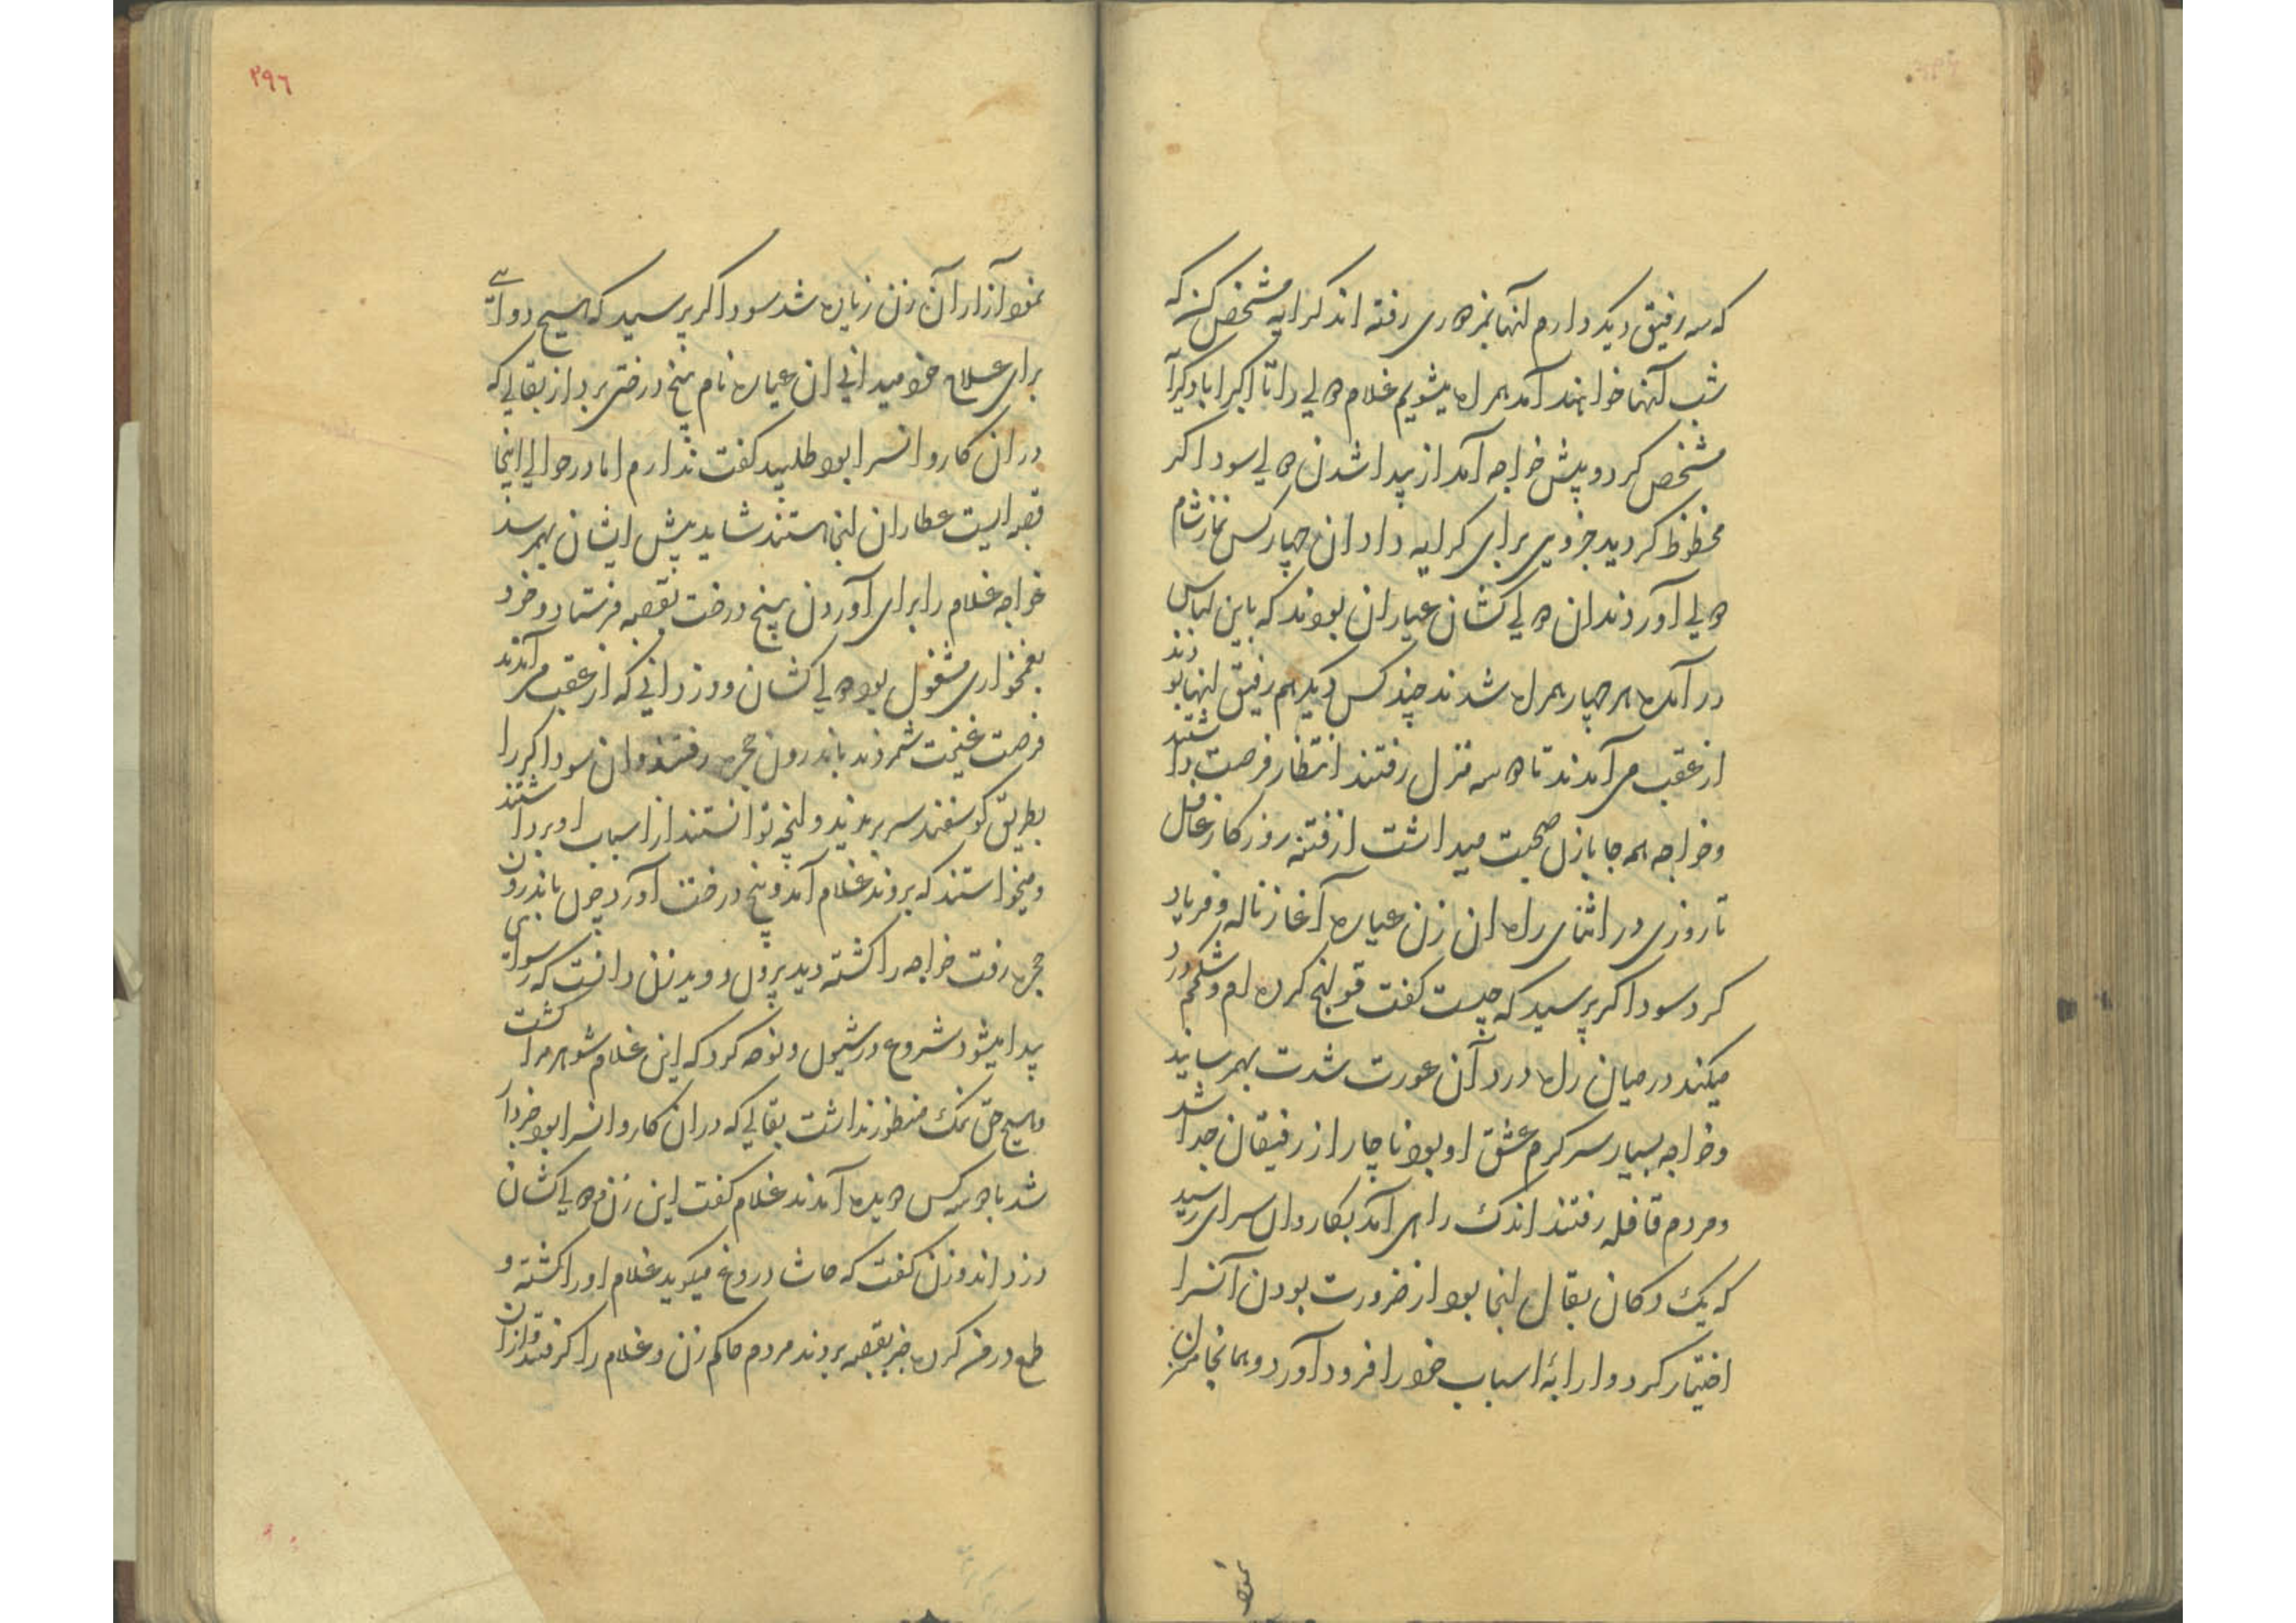 که سه رفیق دیکر دارم آنها بمزدوری رفته اند کرایه مشخص کنید که
شب آنها خواهند آمد همراه میشویم غلام دولی را تا اکبراباد کرآ
مشخص کرد و پیش خواجه آمد از پیدا شدن دولی سوداکر
محظوظ کردید جزوی برای کرایه داد ان چهار کس نماز شام
دولی آوردند ان دولی کشان عیاران بودند که باین لباس
در آمده هر چهار همراه شدند چند کس دیکر هم رفیق آنها بودند
از عقب می آمدند تا دو سه منزل رفتند انتظار فرصت داشتند
و خواجه همه جا بازن صحبت میداشت از فتنه روزکار غافل
تا روزی در اثنای راه ان زن عیاره آغاز ناله و فریاد
کرد سوداکر پرسید که چیست کفت قولنج کرده ام و شکمم درد
میکند در میان راه درد آن عورت شدت بهم رسانید
و خواجه بسیار سرکرم عشق او بود ناچار از رفیقان جدا شد
و مردم قافله رفتند اندک راهی آمد بکاروان سرای رسید
که یک دکان بقال آنجا بود از ضرورت بودن آنسرا
اختیار کرد و ارابه اسباب خود را فرود آورد و همانجا منزل
نمود
۲۹۶
نمود آزار آن زن زیاده شد سوداکر پرسید که هیچ دوائے
برای علاج خود میدانی ان عیاره نام بیخ درختی برد از بقالی که
در ان کاروانسرا بود طلبید کفت ندارم اما در حوالی اینجا
قصبه ایست عطاران آنجا هستند شاید پیش ایشان بهم رسد
خواجه غلام را برای آوردن بیخ درخت بقصبه فرستاد و خود
بغمخواری مشغول بود دولی کشان و دزدانی که از عقب می آمدند
فرصت غنیمت شمردند باندرون حجره رفتند و ان سوداکر را
بطریق کوسفند سر بریدند و آنچه توانستند از اسباب او برداشتند
و میخواستند که بروند غلام آمد و بیخ درخت آورد چون باندرون
حجره رفت خواجه را کشته دید بیرون دوید زن دانست که رسوائی
پیدا میشود شروع در شیون و نوحه کرد که این غلام شوهر مرا کشت
و هیچ حق نمک منظور نداشت بقالی که در ان کاروانسرا بود خبردار
شد با دو سه کس دویده آمدند غلام کفت این زن و دولی کشان
دزد اند و زن کفت که حاشا دروغ میکوید غلام او را کشته و
طمع در من کرده خبر بقصبه بردند مردم حاکم زن و غلام را کرفتند و ازان